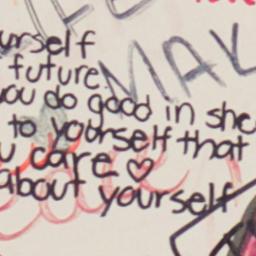 urself
future
MAK
ou do good in
to yourself that
u care ♡
about yourself